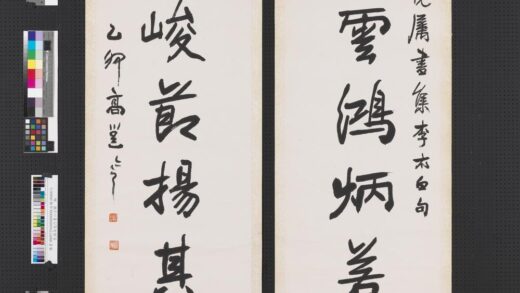 屬書集李太白句
雲鴻炳
峻節揚其
乙卯高邕